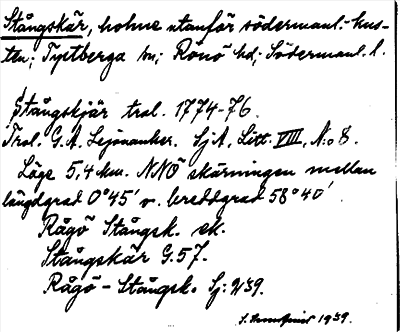 Stångskär, holme utanför södermanl.-kus-
ten; Tystberga sn; Rönö hd; Södermanl. l.
Stångskjär trol. 1774-76
Trol. G. A. Lejonanker. SjA, Litt. VIII, N:o 8.
Läge 5,4 km. NNÖ skärningen mellan
längdgrad 0°45' v. breddgrad 58°40'
Rågö Stångsk. ek.
Stångskär G.57.
Rågö-Stångsk. Sj:
1939.